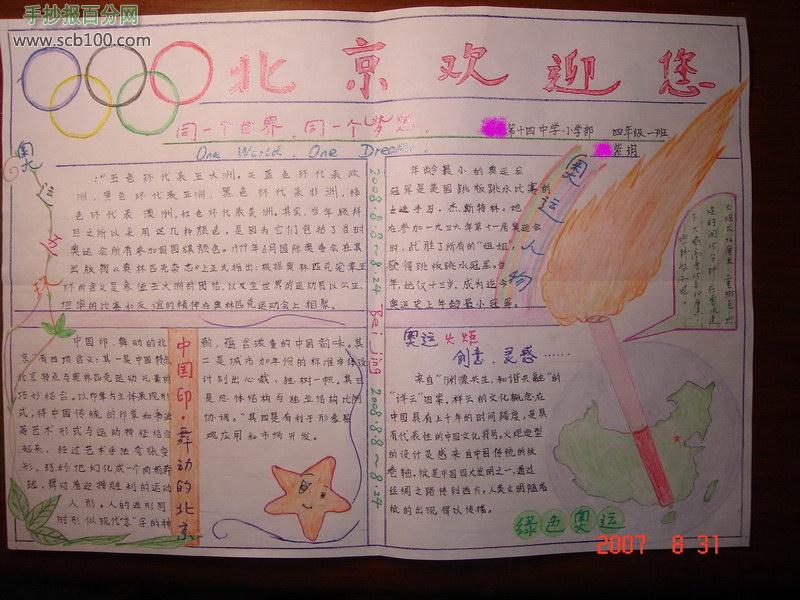 手抄报百分网
www.scb100.com
北京欢迎您
同一个世界,同一个梦想.
第十四中学小学部 四年级一班
紫玥
One World. One Dream.
奥运
五环
"五色环代表五大洲。天蓝色环代表欧
洲,黄色环代表亚洲,黑色环代表非洲,绿
色环代表澳洲,红色环代表美洲。其实,当年顾拜
旦之所以采用这几种颜色,是因为它们包括了当时
奥运会所有参加国国旗颜色。1979年6月国际奥委会在其
出版物《奥林匹克杂志》上正式指出:根据奥林匹克宪章五
环的含义是象征五大洲的团结,以及全世界的运动员以公正、
坦率的比赛和友谊的精神在奥林匹克运动会上相聚。
2008.8.8~8.24 Beijing 2008.8.8~8.24
年龄最小的奥运会
冠军是美国跳板跳水比赛的
杰斯特林,她
在参加一九三六年第十一届奥运会
时,战胜了所有的"姐姐,
获得跳板跳水冠军。当
年,她仅十三岁,成为迄今
奥运史上年龄最小冠军。
奥运人物
中国印·舞动的北京
中国印,舞动的北
京,有四项含义:其一是中国特点、
北京特点与奥林匹克运动元素的
巧妙结合。以印章为主体表现形
式,将中国传统的印章和书法
等艺术形式与运动特征结合
起来,经过艺术手法夸张变
形、巧妙地幻化成一个向前奔
跑、舞动着迎接胜利的运动
人形。人的造形同
时形似现代"京"字的神
韵,蕴含浓重的中国韵味。其
二是城市加年份的标准字体设
计别出心裁、独树一帜。其三
是总体结构与独立结构比例
协调。"其四是有利于形象景
观应用和市场开发。
奥运火炬
创意、灵感……
来自"渊源共生,和谐共融"的
"祥云"图案。祥云的文化概念在
中国具有上千年的时间跨度,是具
有代表性的中国文化符号。火炬造型
的设计灵感来自中国传统的纸
卷轴。纸是中国四大发明之一,通过
丝绸之路传到西方。人类文明随着
纸的出现得以传播。
绿色奥运
2007 8 31